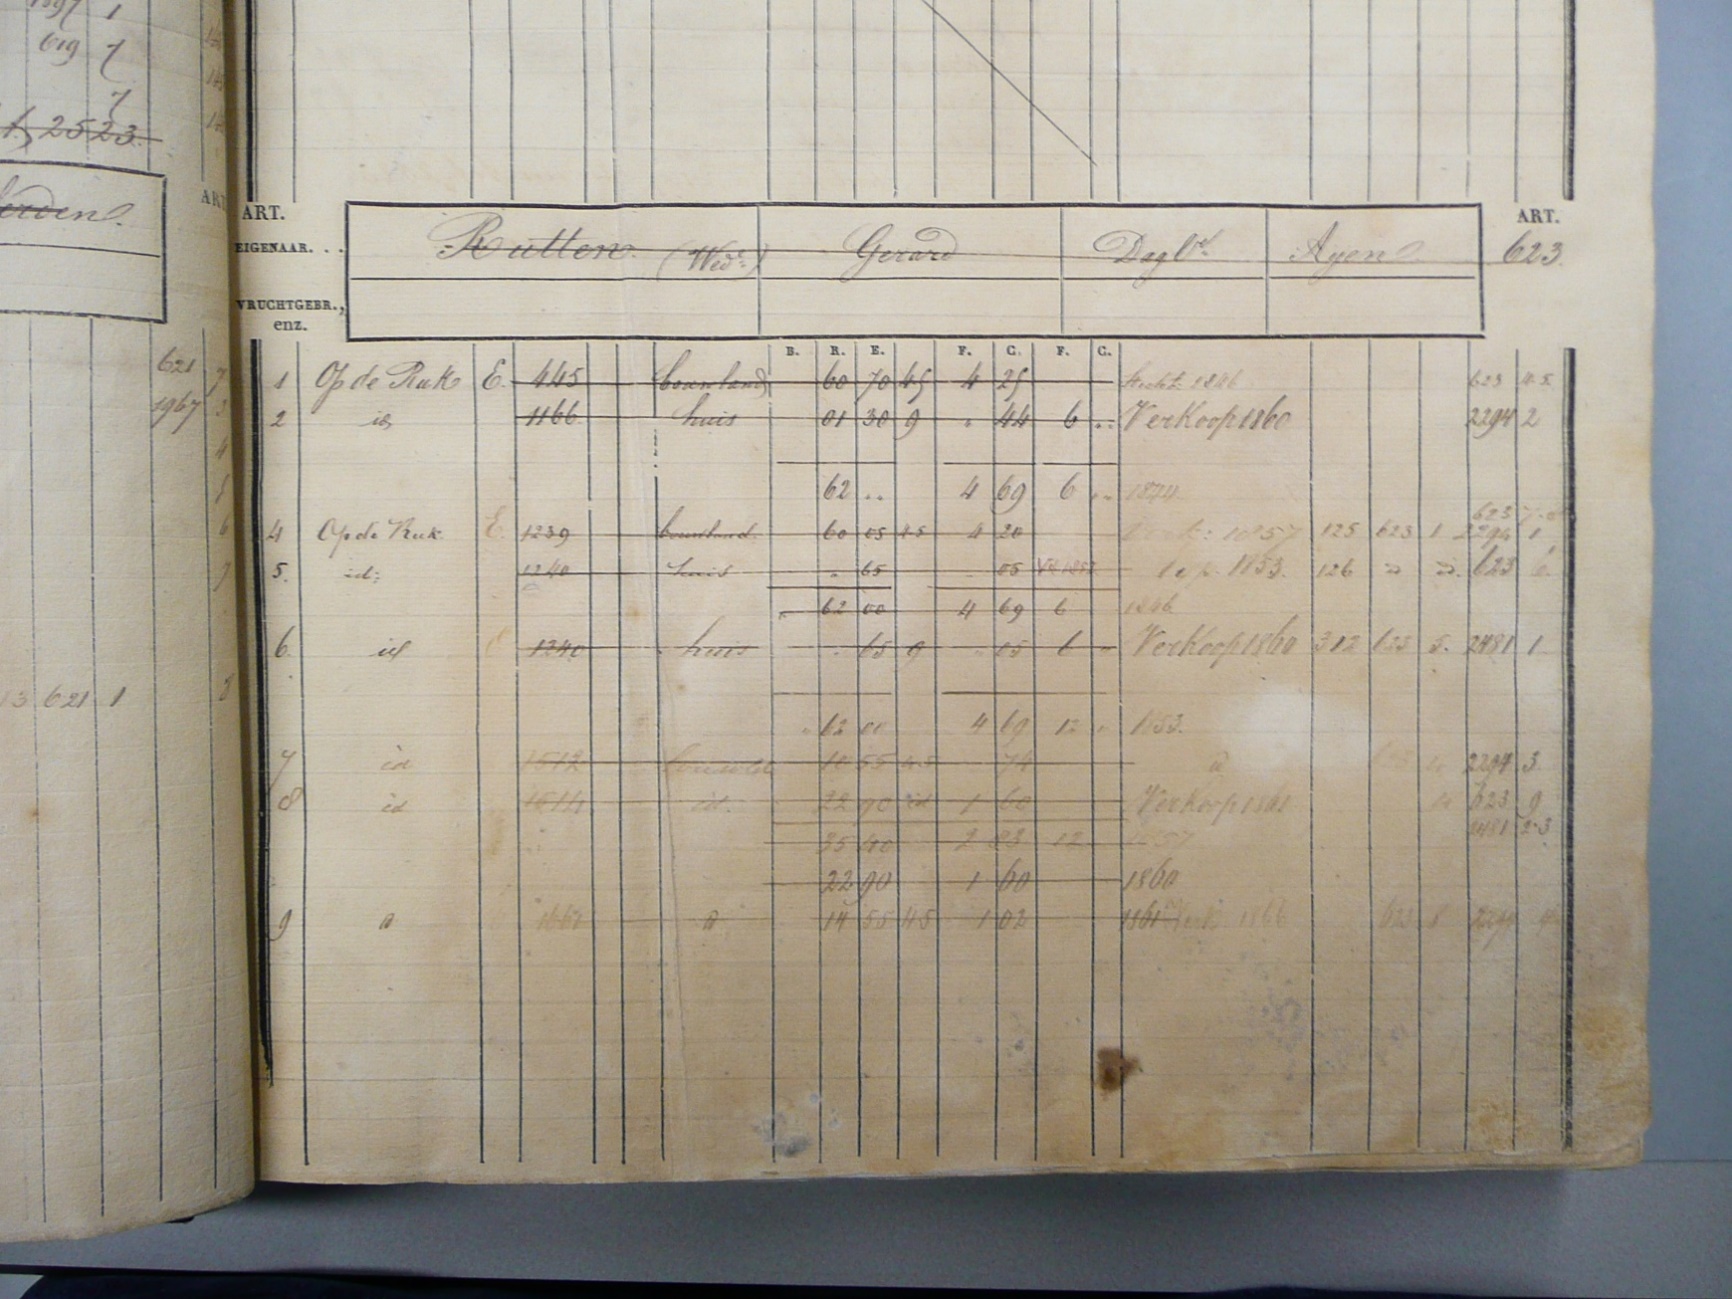 1897 1
619 7
7
2523.
ART.
ART.
EIGENAAR. . .
Rutten (Wed:) Gerard Dagl. Ayen
623.
VRUCHTGEBR.,
enz.
B. R. E. F. C. F. C.
621 7
1967 3
1 Op de Ruk E. 445 bouwland 60 70 45 4 25 1846 623 4.5
2 id 1166 huis 01 30 9 „ 44 6 .. Verkoop 1860 2294 2
62 .. 4 69 6 .. 1844
4 Op de Ruk E. 1239 bouwland 60 05 45 4 20 1857 125 623 1 2294 1
5. id: 1240 huis „ 65 „ 05 1853. 126 623 6
62 00 4 69 6 1846
6. id E 1240 huis „ 65 9 „ 05 6 „ Verkoop 1860 312 623 5. 2481 1
13 621 1
62 00 4 69 12 „ 1853.
7 id 1512 10 55 45 74 id 2294 3
8 id 1514 id. 22 90 id 1 60 Verkoop 1861 623 9
2481 2.3
35 40 2 83 12 1857
22 90 1 60 1860
9 14 55 45 1 02 1861 1866 623 8